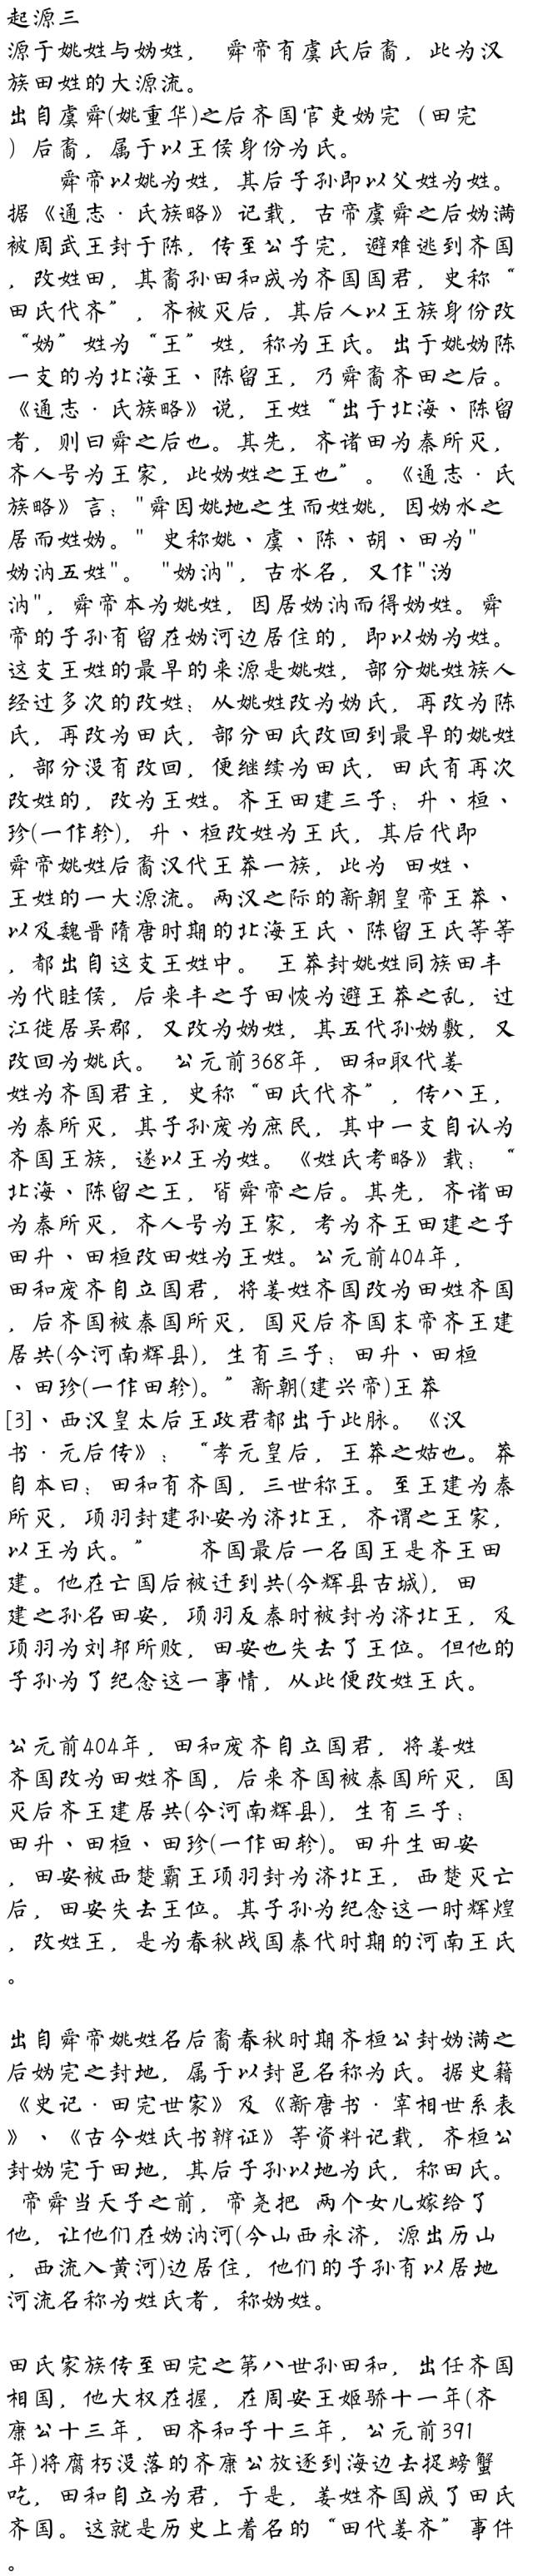 起源三
源于姚姓与妫姓， 舜帝有虞氏后裔，此为汉
族田姓的大源流。
出自虞舜(姚重华)之后齐国官吏妫完（田完
）后裔，属于以王侯身份为氏。
舜帝以姚为姓，其后子孙即以父姓为姓。
据《通志·氏族略》记载，古帝虞舜之后妫满
被周武王封于陈，传至公子完，避难逃到齐国
，改姓田，其裔孙田和成为齐国国君，史称“
田氏代齐”，齐被灭后，其后人以王族身份改
“妫”姓为“王”姓，称为王氏。出于姚妫陈
一支的为北海王、陈留王，乃舜裔齐田之后。
《通志·氏族略》说，王姓“出于北海、陈留
者，则曰舜之后也。其先，齐诸田为秦所灭，
齐人号为王家，此妫姓之王也”。《通志·氏
族略》言："舜因姚地之生而姓姚，因妫水之
居而姓妫。" 史称姚、虞、陈、胡、田为"
妫汭五姓"。 "妫汭"，古水名，又作"沩
汭"，舜帝本为姚姓，因居妫汭而得妫姓。舜
帝的子孙有留在妫河边居住的，即以妫为姓。
这支王姓的最早的来源是姚姓，部分姚姓族人
经过多次的改姓：从姚姓改为妫氏，再改为陈
氏，再改为田氏，部分田氏改回到最早的姚姓
，部分没有改回，便继续为田氏，田氏有再次
改姓的，改为王姓。齐王田建三子：升、桓、
珍(一作轸)，升、桓改姓为王氏，其后代即
舜帝姚姓后裔汉代王莽一族，此为 田姓、
王姓的一大源流。两汉之际的新朝皇帝王莽、
以及魏晋隋唐时期的北海王氏、陈留王氏等等
，都出自这支王姓中。 王莽封姚姓同族田丰
为代睦侯，后来丰之子田恢为避王莽之乱，过
江徙居吴郡，又改为妫姓，其五代孙妫敷，又
改回为姚氏。 公元前368年，田和取代姜
姓为齐国君主，史称“田氏代齐”，传八王，
为秦所灭，其子孙废为庶民，其中一支自认为
齐国王族，遂以王为姓。《姓氏考略》载：“
北海、陈留之王，皆舜帝之后。其先，齐诸田
为秦所灭，齐人号为王家，考为齐王田建之子
田升、田桓改田姓为王姓。公元前404年，
田和废齐自立国君，将姜姓齐国改为田姓齐国
，后齐国被秦国所灭，国灭后齐国末帝齐王建
居共(今河南辉县)，生有三子：田升、田桓
、田珍(一作田轸)。”新朝(建兴帝)王莽
[3]、西汉皇太后王政君都出于此脉。《汉
书·元后传》：“孝元皇后，王莽之姑也。莽
自本曰：田和有齐国，三世称王。至王建为秦
所灭，项羽封建孙安为济北王，齐谓之王家，
以王为氏。” 齐国最后一名国王是齐王田
建。他在亡国后被迁到共(今辉县古城)，田
建之孙名田安，项羽反秦时被封为济北王，及
项羽为刘邦所败，田安也失去了王位。但他的
子孙为了纪念这一事情，从此便改姓王氏。
公元前404年，田和废齐自立国君，将姜姓
齐国改为田姓齐国，后来齐国被秦国所灭，国
灭后齐王建居共(今河南辉县)，生有三子：
田升、田桓、田珍(一作田轸)。田升生田安
，田安被西楚霸王项羽封为济北王，西楚灭亡
后，田安失去王位。其子孙为纪念这一时辉煌
，改姓王，是为春秋战国秦代时期的河南王氏
。
出自舜帝姚姓名后裔春秋时期齐桓公封妫满之
后妫完之封地，属于以封邑名称为氏。据史籍
《史记·田完世家》及《新唐书·宰相世系表
》、《古今姓氏书辨证》等资料记载，齐桓公
封妫完于田地，其后子孙以地为氏，称田氏。
帝舜当天子之前，帝尧把 两个女儿嫁给了
他，让他们在妫汭河(今山西永济，源出历山
，西流入黄河)边居住，他们的子孙有以居地
河流名称为姓氏者，称妫姓。
田氏家族传至田完之第八世孙田和，出任齐国
相国，他大权在握，在周安王姬骄十一年(齐
康公十三年，田齐和子十三年，公元前391
年)将腐朽没落的齐康公放逐到海边去捉螃蟹
吃，田和自立为君，于是，姜姓齐国成了田氏
齐国。这就是历史上着名的“田代姜齐”事件
。